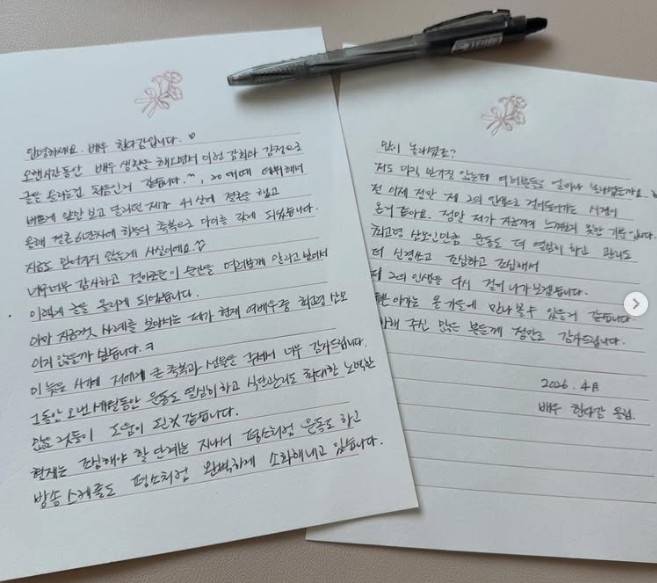 안녕하세요. 배우 한다감입니다. ♡
오랜시간동안 배우 생활을 해오면서 이런 감정으로
글을 올리는건 처음인거 같습니다. ^^, 20대때 데뷔해서
배우에 앞만 보고 달리던 제가 41살에 결혼을 했고
올해 결혼 6년차에 하늘의 축복으로 다이를 갖게 되었습니다.
지금도 믿어지지 않는데 사실이에요.
너무너무 감사하고 경이로운 이 순간을 여러분께 알리고 싶어서
이렇게 글을 올리게 되었습니다.
아마 지금껏 사례를 보아서는 제가 현재 여배우중 최고령 산모
이지 않을까 싶습니다. ㅋ
이 늦은 시기에 저에게 큰 축복과 선물을 주셔서 너무 감사드립니다.
그동안 오랜 세월동안 운동도 열심히 하고 식단관리도 최대한 노력한
모든 것들이 도움이 된것 같습니다.
현재는 조심해야 할 단계는 지나서 평소처럼 운동도 하고
방송스케줄도 평소처럼 완벽하게 소화해내고 있습니다.
많이 놀라셨죠?
저도 믿기지 않는데 여러분들은 얼마나 놀라셨을까요.
전 이제 정말 제 2의 인생으로 걸어들어가는 시점이
온거 같아요. 정말 제가 지금까지 느껴보지 못한 기분입니다.
최고령 산모인만큼 운동도 더 열심히 하고 관리도
더 신경쓰고 조심하고 조심해서
제 2의 인생을 다시 걸어 나가 보겠습니다.
아가는 올 가을에 만나 볼 수 있을거 같습니다.
해 주신 많은 분들께 정말로 감사드립니다.
2026. 4월
배우 한다감 올림.